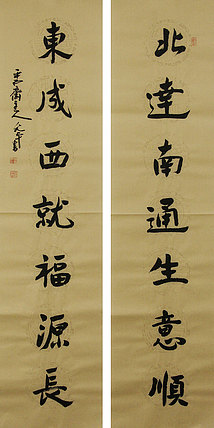 北達南通生意順
東成西就福源長